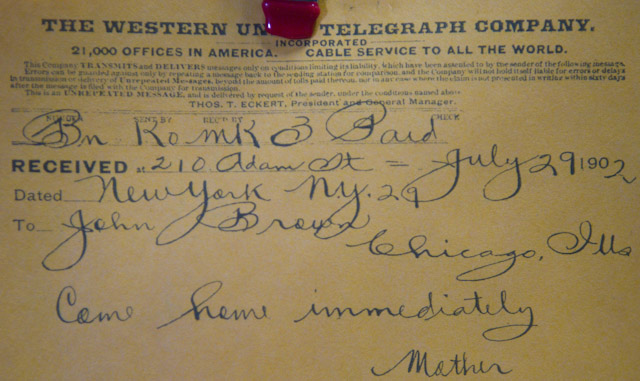 THE WESTERN UN TELEGRAPH COMPANY.
INCORPORATED
21,000 OFFICES IN AMERICA. CABLE SERVICE TO ALL THE WORLD.
This Company TRANSMITS and DELIVERS messages only on conditions limiting its liability, which have been assented to by the sender of the following message.
Errors can be guarded against only by repeating a message back to the sending station for comparison, and the Company will not hold itself liable for errors or delays
in transmission or delivery of Unrepeated Messages, beyond the amount of tolls paid thereon, nor in any case where the claim is not presented in writing within sixty days
after the message is filed with the Company for transmission.
This is an UNREPEATED MESSAGE, and is delivered by request of the sender, under the conditions named above.
THOS. T. ECKERT, President and General Manager.
NUMBER SENT BY REC'D BY CHECK
Bn Ko MK 3 Paid
RECEIVED at 210 Adam St = July 29 1902
Dated New York N.Y. 29
To John Brown
Chicago, Ills
Come home immediately
Mother